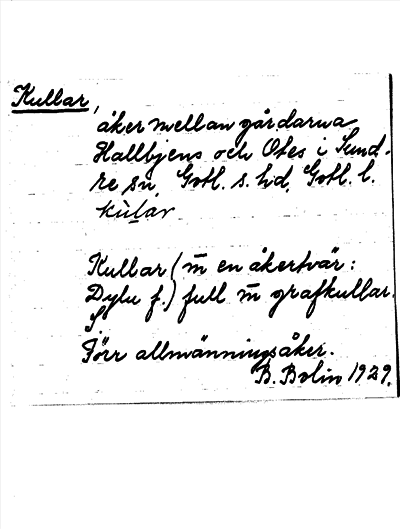 Kullar,
åker mellan gårdarna
Hallbjens och Otes i Sund-
re sn, Gotl. s. hd, Gotl. l.
kùlar
Kullar (m̅ en åkertvär:
Dylu f.) full m̅ grafkullar.
S.
Förr allmänningsåker.
B. Bolin 1929.